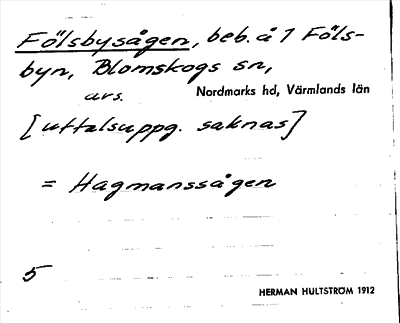 Fölsbysågen, beb. å 1 Föls-
byn, Blomskogs sn,
avs. Nordmarks hd, Värmlands län
[uttalsuppg. saknas]
= Hagmanssågen
5
HERMAN HULTSTRÖM 1912